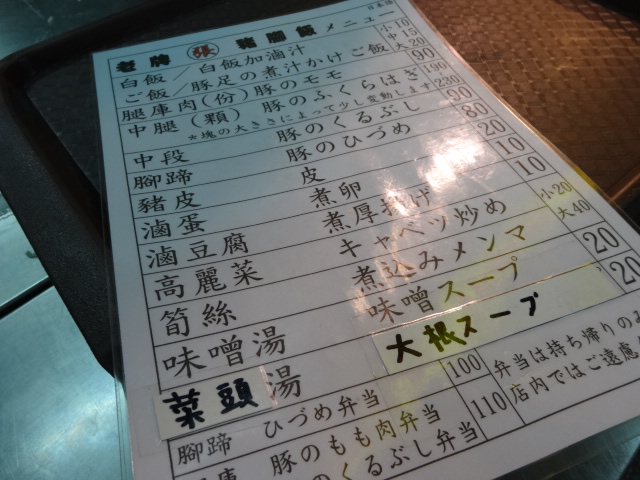 老牌 張 豬腳飯 メニュー 日本語
白飯/白飯加滷汁 小10 中15 大20
ご飯/豚足の煮汁かけご飯
腿庫肉(份) 豚のモモ 90
中腿(顆) 豚のふくらはぎ
*塊の大きさによって少し変動します 190 230
中段 豚のくるぶし 90
腳蹄 豚のひづめ 80
豬皮 皮 20
滷蛋 煮卵 10
滷豆腐 煮厚揚げ 10
高麗菜 キャベツ炒め 小20 大40
筍絲 煮込みメンマ 20
味噌湯 味噌スープ 20
菜頭湯 大根スープ
腳蹄 ひづめ弁当 100 弁当は持ち帰りのみ
豚のもも肉弁当 110 店内ではご遠慮
くるぶし弁当